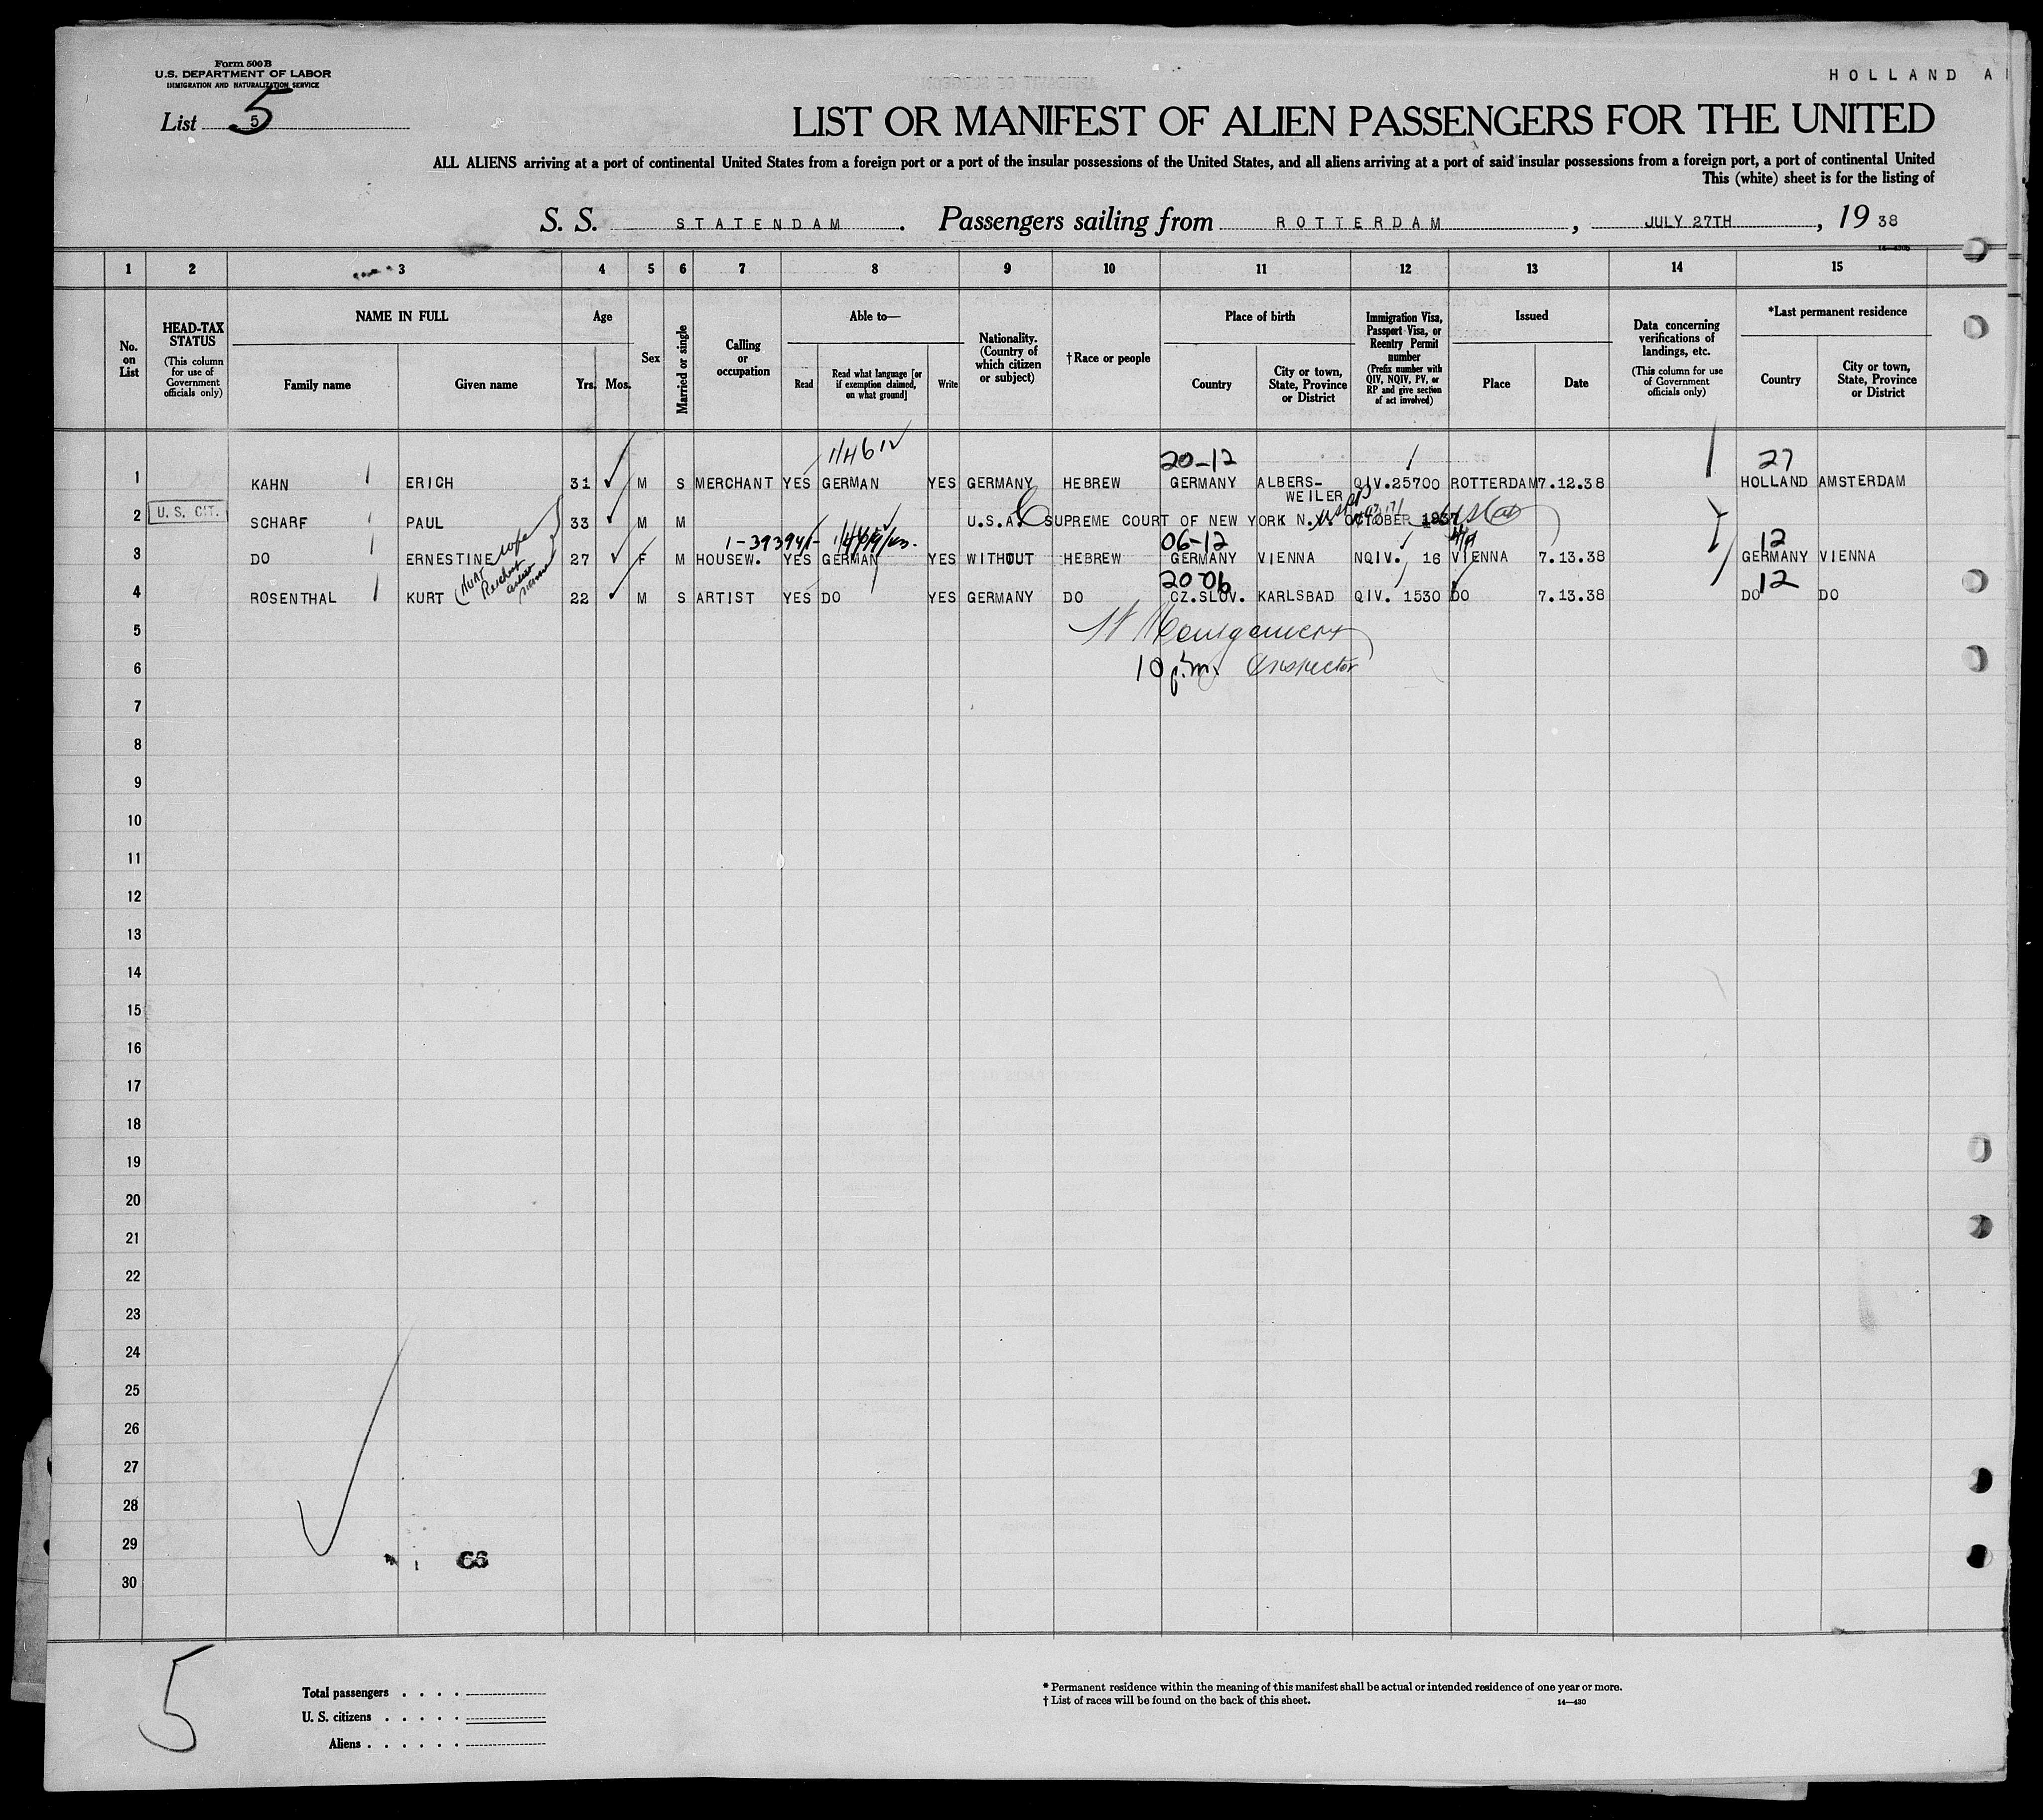 Form 500 B
U.S. DEPARTMENT OF LABOR
IMMIGRATION AND NATURALIZATION SERVICE
HOLLAND A
List 5 5
LIST OR MANIFEST OF ALIEN PASSENGERS FOR THE UNITED
ALL ALIENS arriving at a port of continental United States from a foreign port or a port of the insular possessions of the United States, and all aliens arriving at a port of said insular possessions from a foreign port, a port of continental United
This (white) sheet is for the listing of
S. S. STATENDAM. Passengers sailing from ROTTERDAM, JULY 27TH, 19 38
1 2 3 4 5 6 7 8 9 10 11 12 13 14 15
No. on List
HEAD-TAX STATUS (This column for use of Government officials only)
NAME IN FULL
Family name Given name
Age
Yrs. Mos.
Sex
Married or single
Calling or occupation
Able to—
Read
Read what language [or if exemption claimed, on what ground]
Write
Nationality. (Country of which citizen or subject)
†Race or people
Place of birth
Country
City or town, State, Province or District
Immigration Visa, Passport Visa, or Reentry Permit number (Prefix number with QIV, NQIV, PV, or RP and give section of act involved)
Issued
Place Date
Data concerning verifications of landings, etc. (This column for use of Government officials only)
*Last permanent residence
Country
City or town, State, Province or District
20-12 27
1 KAHN ERICH 31 M S MERCHANT YES GERMAN YES GERMANY HEBREW GERMANY ALBERS-WEILER QIV.25700 ROTTERDAM 7.12.38 HOLLAND AMSTERDAM
2 U. S. CIT. SCHARF PAUL 33 M M U.S.A. SUPREME COURT OF NEW YORK N.Y. OCTOBER 1937
1-393941- 06-12 12
3 DO ERNESTINE wife 27 F M HOUSEW. YES GERMAN YES WITHOUT HEBREW GERMANY VIENNA NQIV. 16 VIENNA 7.13.38 GERMANY VIENNA
20-06 12
4 ROSENTHAL KURT 22 M S ARTIST YES DO YES GERMANY DO CZ.SLOV. KARLSBAD QIV. 1530 DO 7.13.38 DO DO
5 Montgomery
6 10 p.m. Inspector
7
8
9
10
11
12
13
14
15
16
17
18
19
20
21
22
23
24
25
26
27
28
29 66
30
5
Total passengers
U. S. citizens
Aliens
* Permanent residence within the meaning of this manifest shall be actual or intended residence of one year or more.
† List of races will be found on the back of this sheet. 14—430